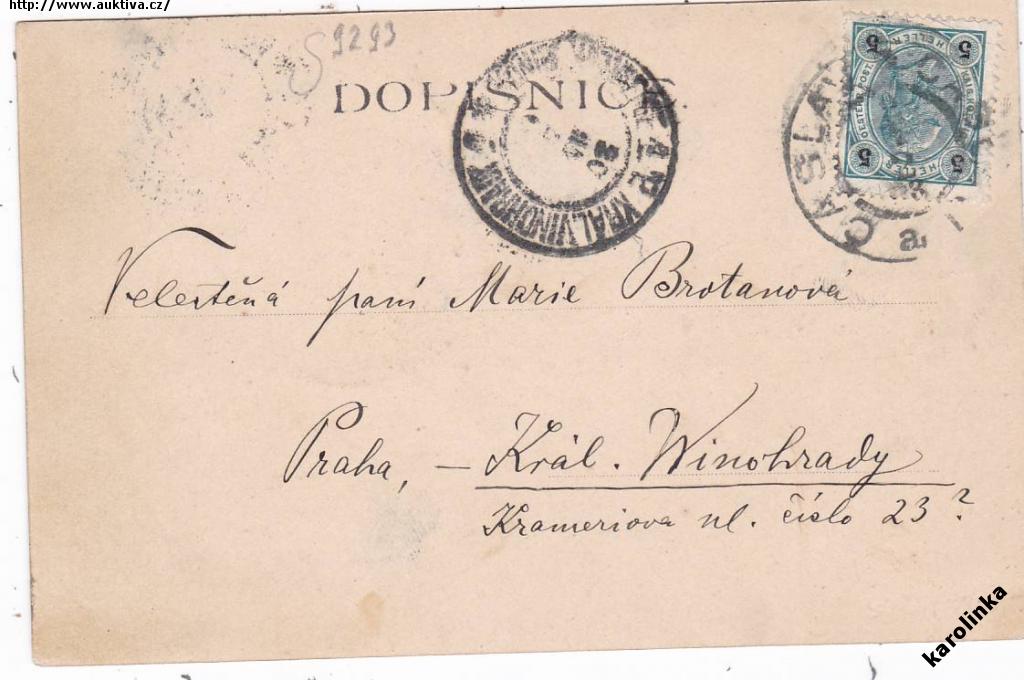 http://www.auktiva.cz/
9293
DOPISNICE.
ČÁSLAV
a
5 HELLER 5
5 HELLER 5
KRÁL. VINOHRADY
02
Velectěná paní Marie Brotanová
Praha, – Král. Winohrady
Krameriova ul. číslo 23?
karolinka